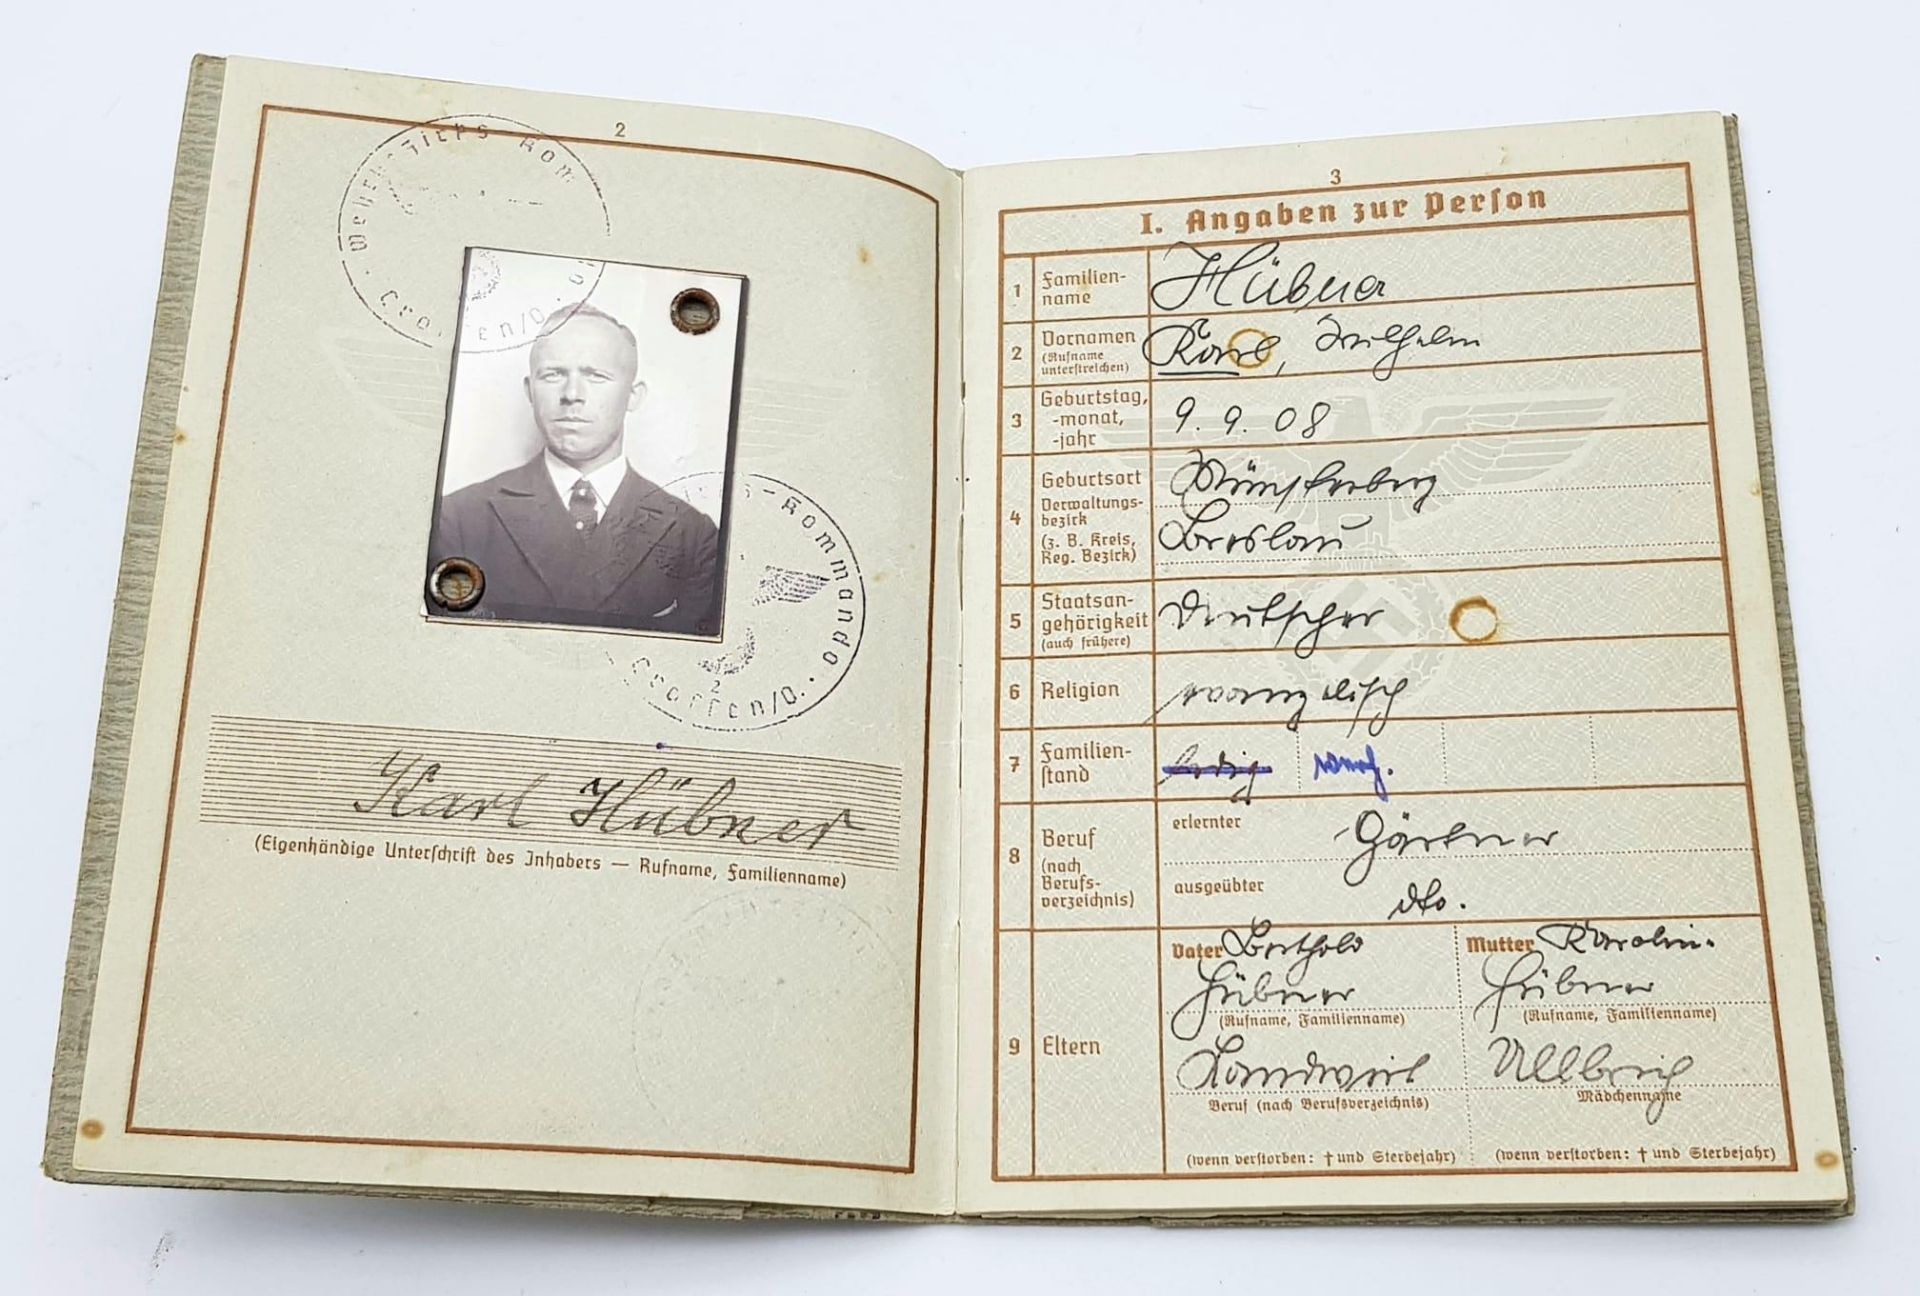 2
Wehrbezirks-Kom
Crossen/O.
Wehrbezirks-Kommando
Crossen/O.
2
Karl Hübner
(Eigenhändige Unterschrift des Inhabers — Rufname, Familienname)
3
I. Angaben zur Person
1 Familien-
name
Hübner
2 Vornamen
(Rufname
unterstreichen)
Karl, Wilhelm
3 Geburtstag,
-monat,
-jahr
9. 9. 08
4 Geburtsort
Verwaltungs-
bezirk
(z. B. Kreis,
Reg. Bezirk)
Münsterberg
Breslau
5 Staatsan-
gehörigkeit
(auch frühere)
Deutscher
6 Religion
evangelisch
7 Familien-
stand
ledig verh.
8 Beruf
(nach
Berufs-
verzeichnis)
erlernter Gärtner
ausgeübter dto.
9 Eltern
Vater Berthold
Hübner
(Rufname, Familienname)
Landwirt
Beruf (nach Berufsverzeichnis)
(wenn verstorben: † und Sterbejahr)
Mutter Karolin.
Hübner
(Rufname, Familienname)
Ullbrich
Mädchenname
(wenn verstorben: † und Sterbejahr)